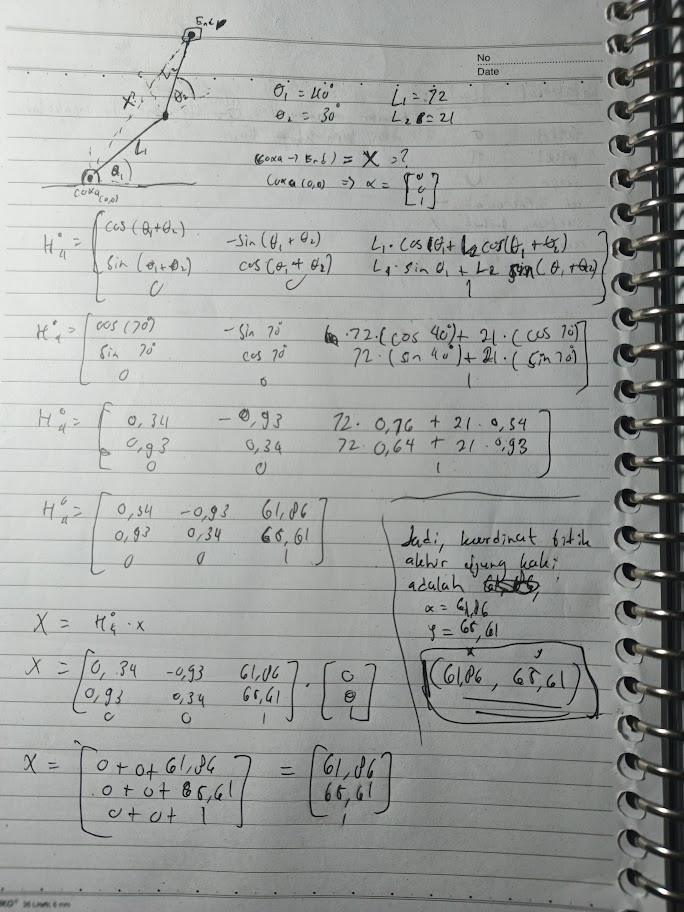 End
No
Date
L₂
θ₂
X
L₁
θ₁
coxa (0,0)
θ₁ = 40° L₁ = 72
θ₂ = 30° L₂ = 21
(coxa → End) = X = ?
coxa (0,0) ⇒ x = [0 0 1]
H⁰₄ = [cos (θ₁+θ₂) -sin (θ₁ + θ₂) L₁ · cos θ₁ + L₂ cos(θ₁ + θ₂)
sin (θ₁+θ₂) cos (θ₁ + θ₂) L₁ · sin θ₁ + L₂ sin (θ₁ + θ₂)
0 0 1]
H⁰₄ = [cos (70°) - sin 70° 72·(cos 40°) + 21·(cos 70°)
sin 70° cos 70° 72·(sin 40°) + 21·(sin 70°)
0 0 1]
H⁰₄ = [0,34 -0,93 72 · 0,76 + 21 · 0,34
0,93 0,34 72 · 0,64 + 21 · 0,93
0 0 1]
H⁰₄ = [0,34 -0,93 61,86
0,93 0,34 65,61
0 0 1]
X = H⁰₄ · x
X = [0,34 -0,93 61,86
0,93 0,34 65,61
0 0 1] · [0 0 1]
X = [0 + 0 + 61,86
0 + 0 + 65,61
0 + 0 + 1] = [61,86
65,61
1]
Jadi, koordinat titik
akhir ujung kaki
adalah
x = 61,86
y = 65,61
x y
(61,86 , 65,61)
26 Lines, 6 mm